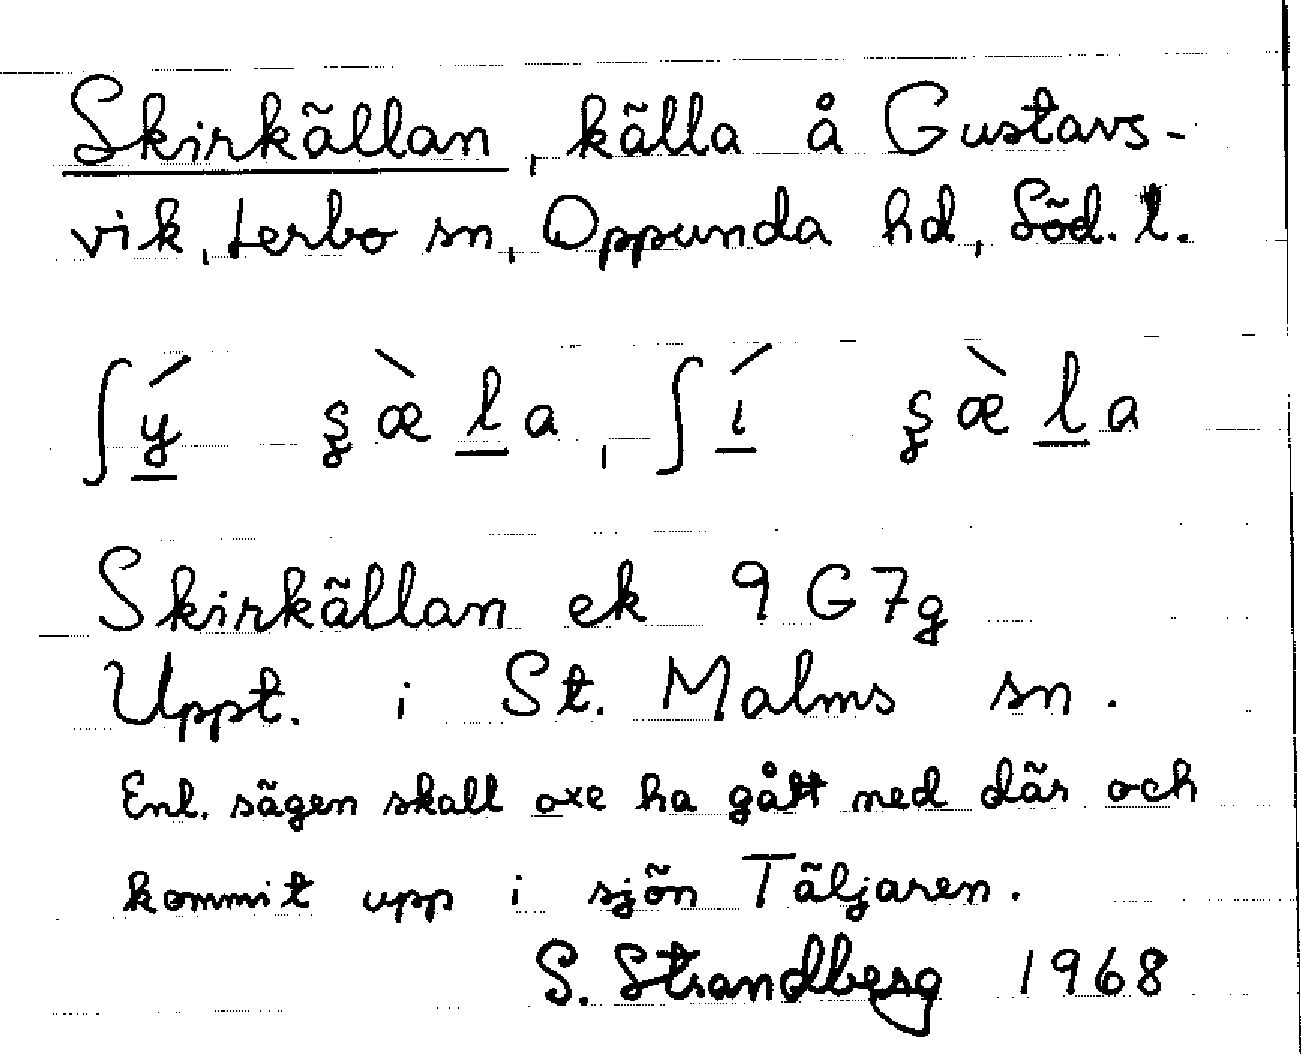 Skirkällan, källa å Gustavs-
vik, Lerbo sn, Oppunda hd, Söd. l.
ʃý ʂæ̀la, ʃí ʂæ̀la
Skirkällan ek 9G7g
Uppt. i St. Malms sn.
Enl. sägen skall oxe ha gått ned där och
kommit upp i sjön Täljaren.
S. Strandberg 1968